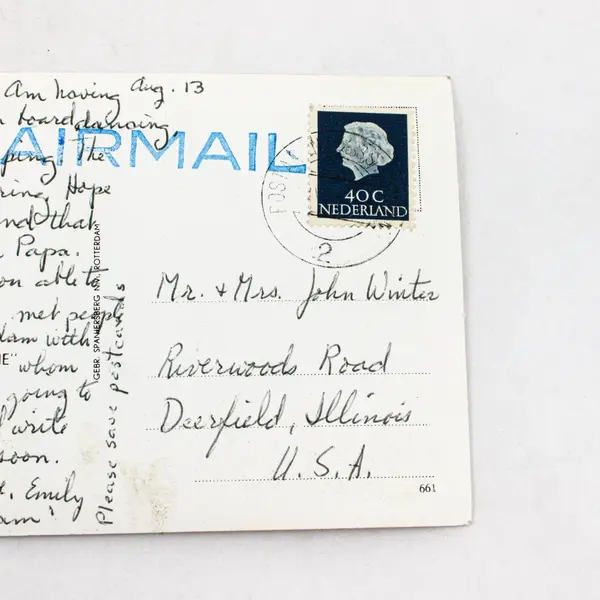 Am having Aug. 13
board dancing,
AIRMAIL
ping the
ring Hope
nd that
Papa.
on able to
met people
dam with
IE" whom
going to
write
soon.
e. Emily
am"
GEBR. SPANJERSBERG N.V., ROTTERDAM
Please save postcards
40 C
NEDERLAND
POST
2
Mr. + Mrs. John Winter
Riverwoods Road
Deerfield, Illinois
U.S.A.
661